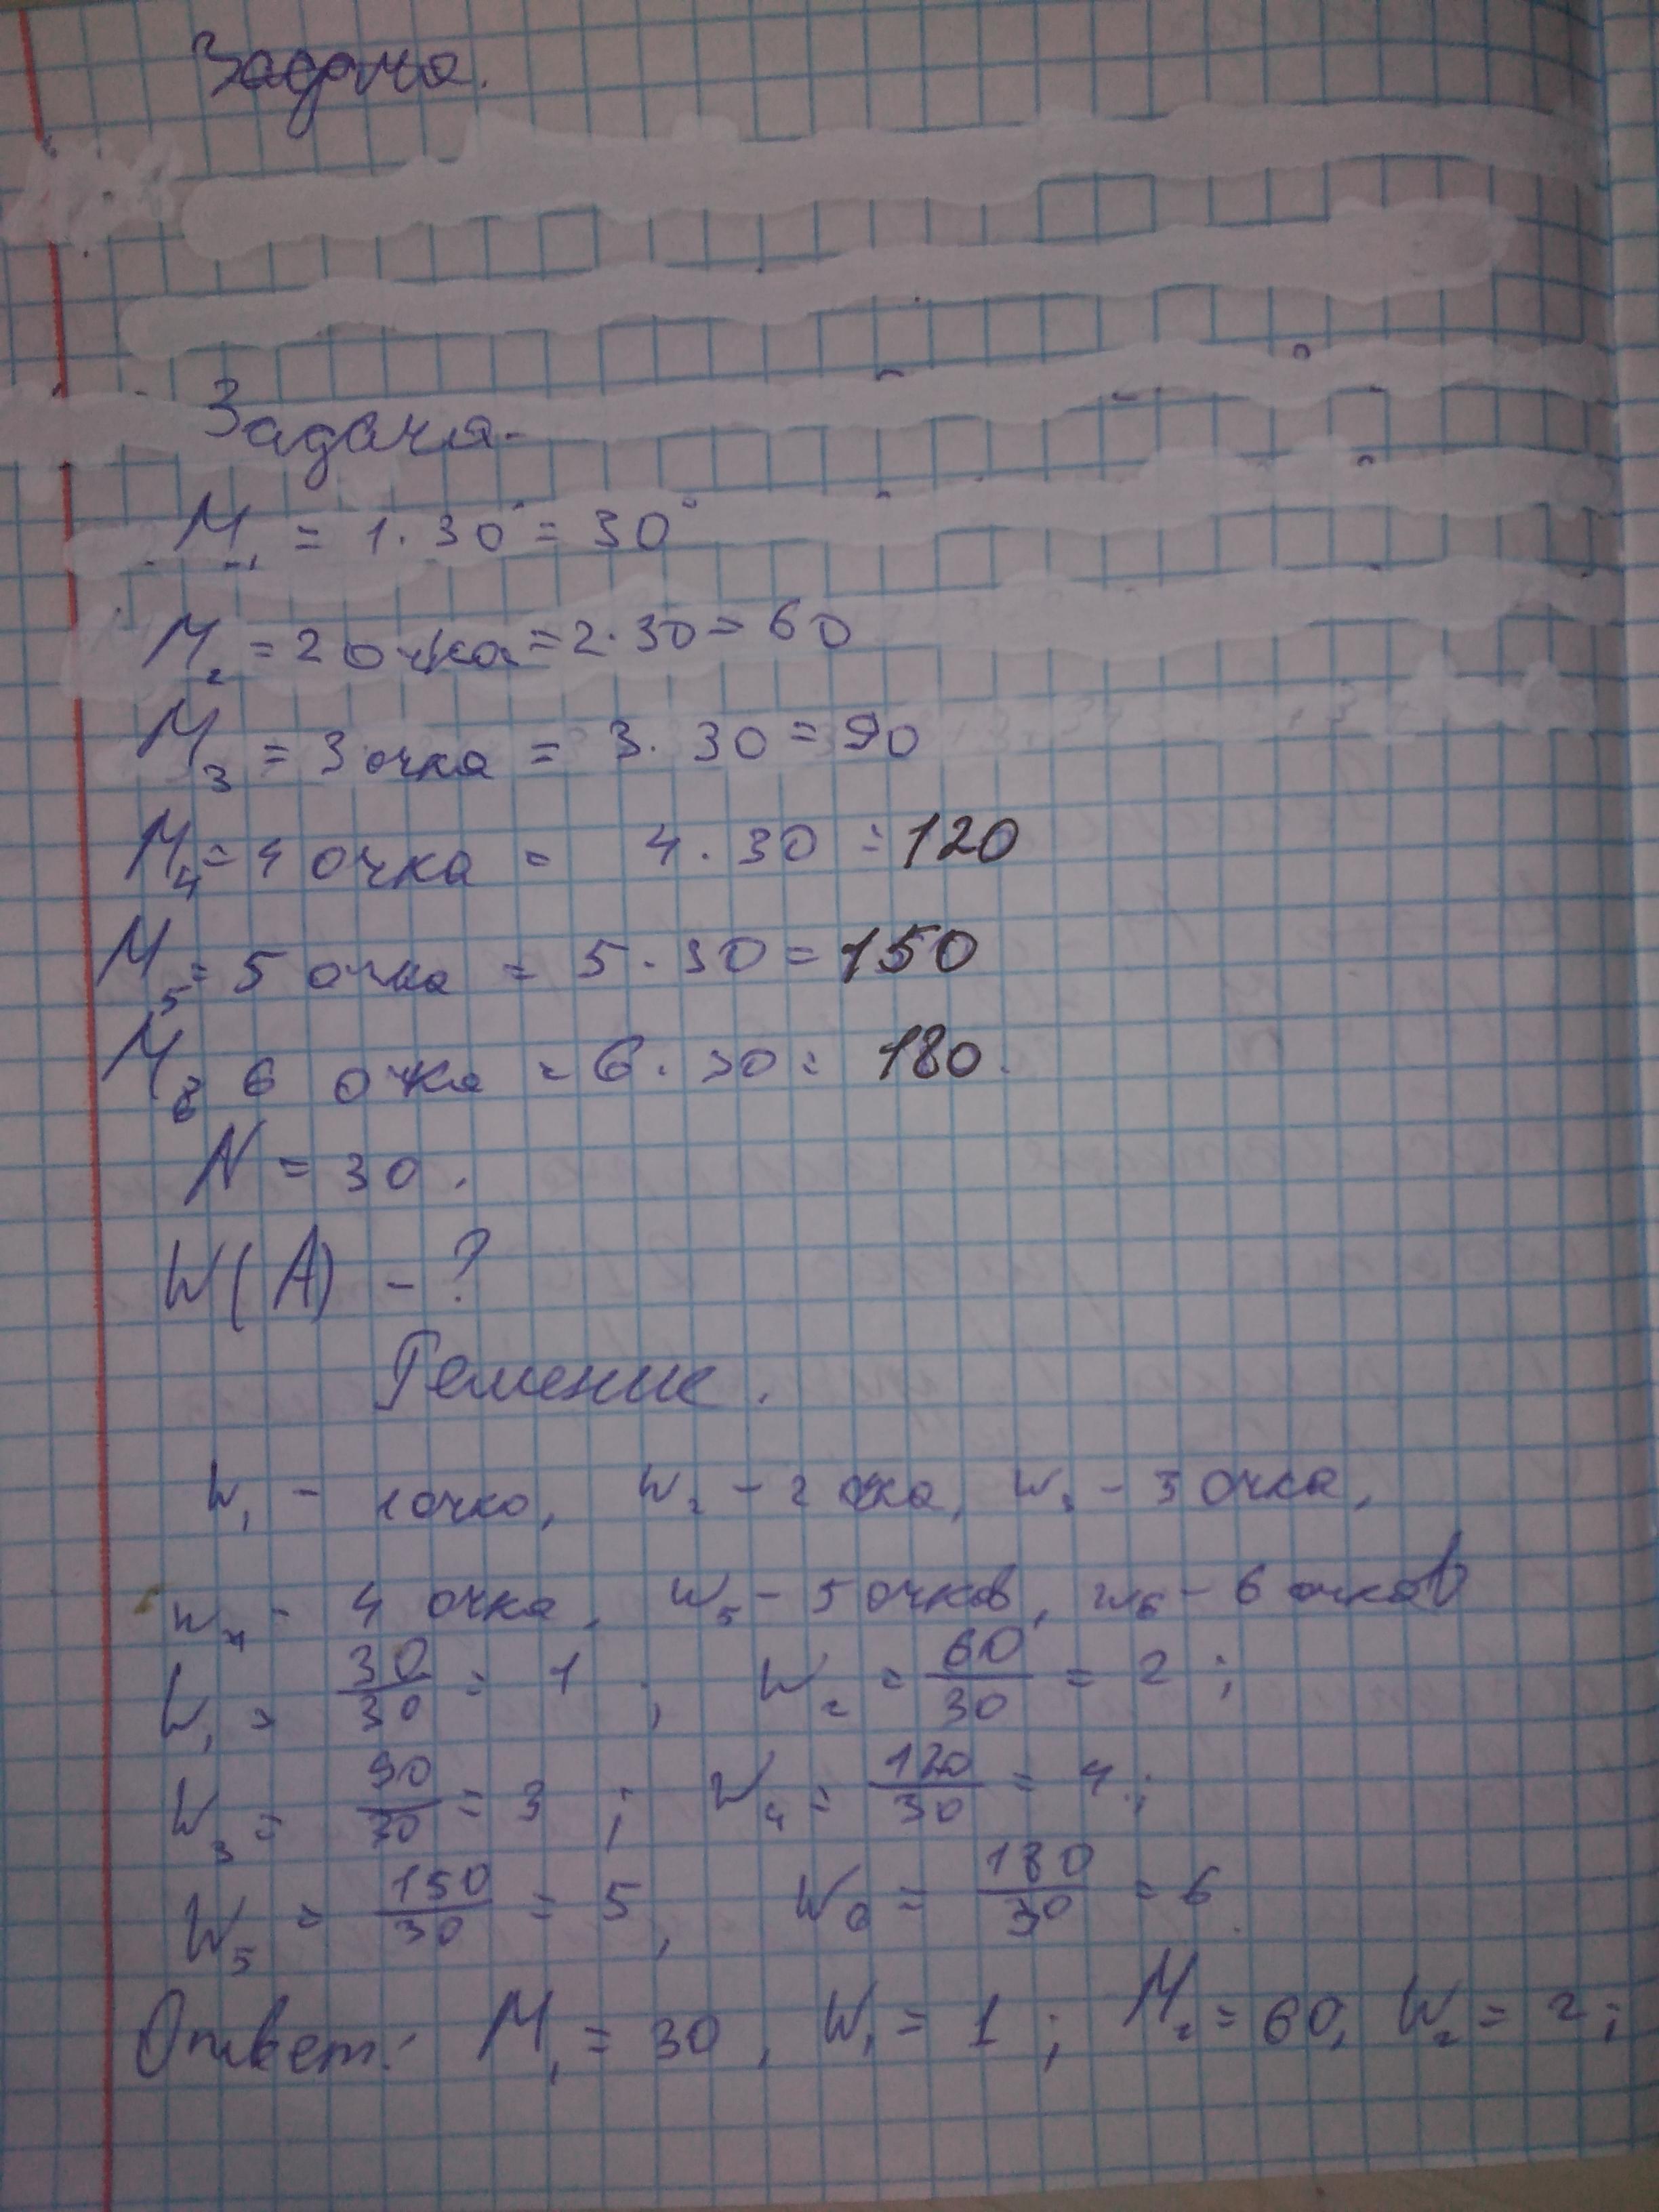 Задача.
Задача.
M₁ = 1 · 30° = 30°
M₂ = 2 очка = 2 · 30 = 60
M₃ = 3 очка = 3 · 30 = 90
M₄ = 4 очка = 4 · 30 = 120
M₅ = 5 очка = 5 · 30 = 150
M₆ 6 очка = 6 · 30 = 180.
N = 30.
W(A) - ?
Решение.
W₁ - 1 очко, W₂ - 2 очка, W₃ - 3 очка,
W₄ - 4 очка, W₅ - 5 очков, W₆ - 6 очков
W₁ = 30/30 = 1 ; W₂ = 60/30 = 2 ;
W₃ = 90/30 = 3 ; W₄ = 120/30 = 4 ;
W₅ = 150/30 = 5 , W₆ = 180/30 = 6.
Ответ: M₁ = 30, W₁ = 1 ; M₂ = 60, W₂ = 2 ;